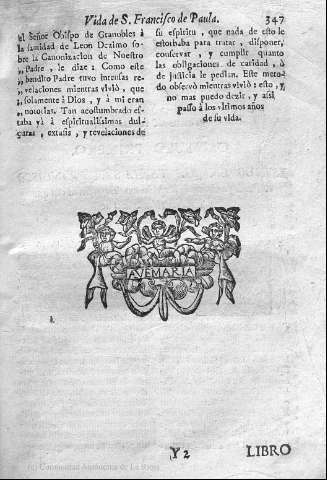 Vida de S. Francisco de Paula. 347
el Señor Obispo de Granobles à
la santidad de Leon Dezimo so-
bre la Canonizacion de Nuestro
„ Padre, le dize: Como este
„ bendito Padre tuvo intensas re-
„ velaciones mientras viviò, que
„ solamente à Dios, y à mi eran
„ notorias. Tan acostumbrado es-
taba yà à espiritualissimas dul-
çuras, extasis, y revelaciones de
su espiritu, que nada de esto le
estorbaba para tratar, disponer,
conservar, y cumplir quanto
las obligaciones de caridad, ò
de justicia le pedian. Este meto-
do observò mientras viviò: esto, y
no mas puedo dezir, y assi
passo à los vltimos años
de su vida.
AVEMARIA
Y2 LIBRO
(c) Comunidad Autónoma de La Rioja